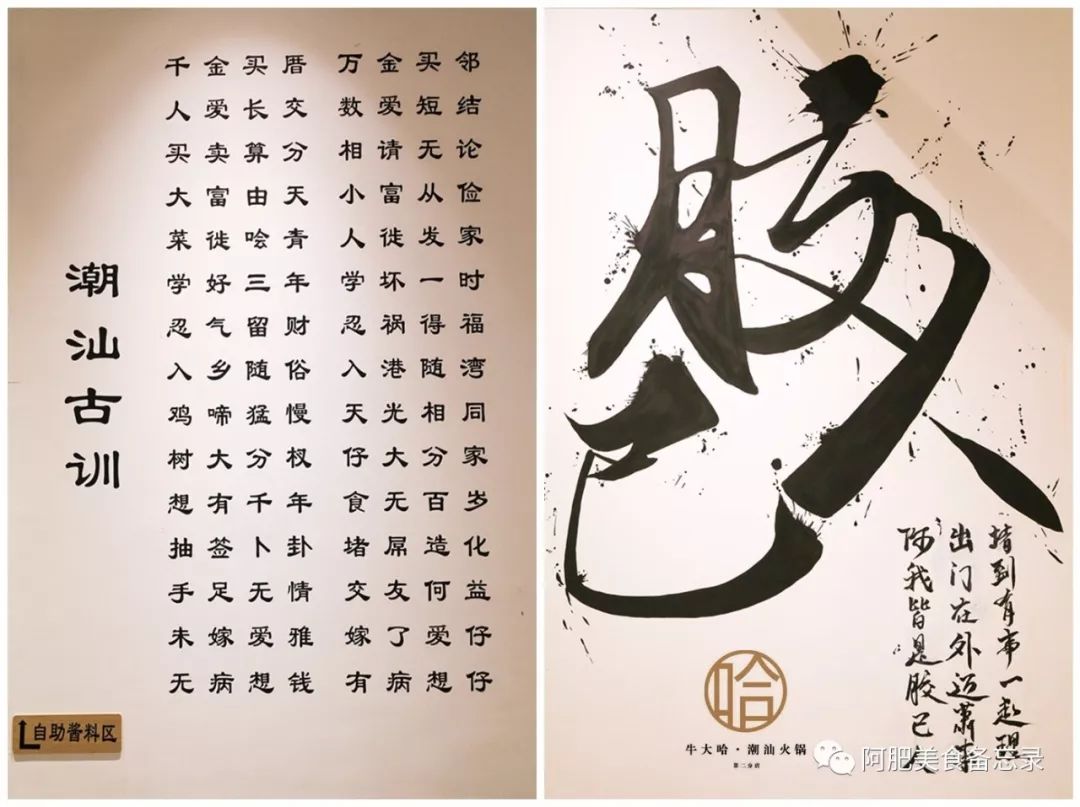 潮汕古训
千金买厝 万金买邻
人爱长交 数爱短结
买卖算分 相请无论
大富由天 小富从俭
菜徙哙青 人徙发家
学好三年 学坏一时
忍气留财 忍祸得福
入乡随俗 入港随湾
鸡啼猛慢 天光相同
树大分杈 仔大分家
想有千年 食无百岁
抽签卜卦 堵屌造化
手足无情 交友何益
未嫁爱雅 嫁了爱仔
无病想钱 有病想仔
自助酱料区
胶己
到有事一起
出门在外迈萧
我皆是胶己人
哈
牛大哈·潮汕火锅
第二分店
阿肥美食备忘录